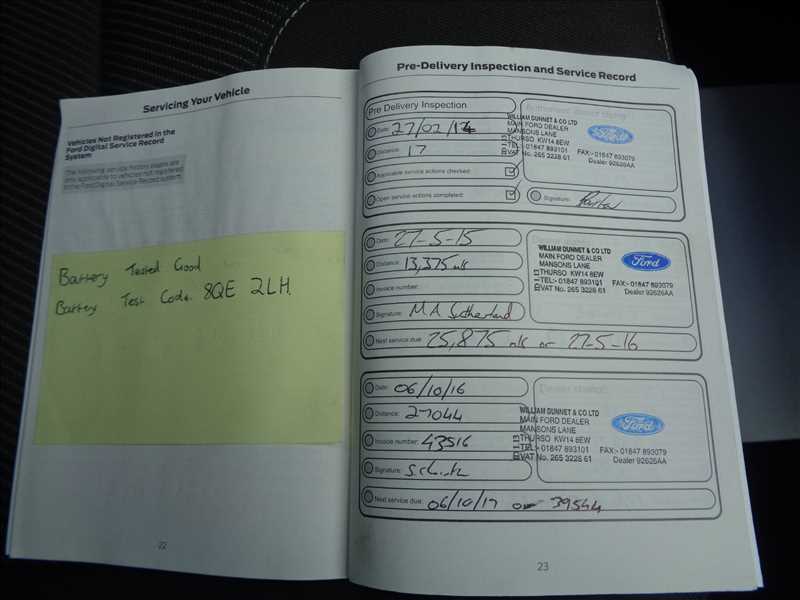 Servicing Your Vehicle
Vehicles Not Registered in the
Ford Digital Service Record
System
The following service history pages are
only applicable to vehicles not registered
in the Ford Digital Service Record system.
Battery Tested Good
Battery Test Code. 8QE 2LH.
22
Pre-Delivery Inspection and Service Record
Pre Delivery Inspection
Date: 27/02/14
Distance: 17
Applicable service actions checked:
Open service actions completed:
WILLIAM DUNNET & CO LTD
MAIN FORD DEALER
MANSONS LANE
THURSO KW14 8EW
TEL:- 01847 893101 FAX:- 01847 893079
VAT No. 265 3228 61 Dealer 92626AA
Ford
Signature:
Date: 27-5-15
Distance: 13,375 mls
Invoice number:
Signature: M.A Sutherland
Next service due: 25,875 mls or 27-5-16
WILLIAM DUNNET & CO LTD
MAIN FORD DEALER
MANSONS LANE
THURSO KW14 8EW
TEL:- 01847 893101 FAX:- 01847 893079
VAT No. 265 3228 61 Dealer 92626AA
Ford
Date: 06/10/16
Distance: 27044
Invoice number: 43516
Signature:
Next service due: 06/10/17 or 39544
WILLIAM DUNNET & CO LTD
MAIN FORD DEALER
MANSONS LANE
THURSO KW14 8EW
TEL:- 01847 893101 FAX:- 01847 893079
VAT No. 265 3228 61 Dealer 92626AA
Ford
23